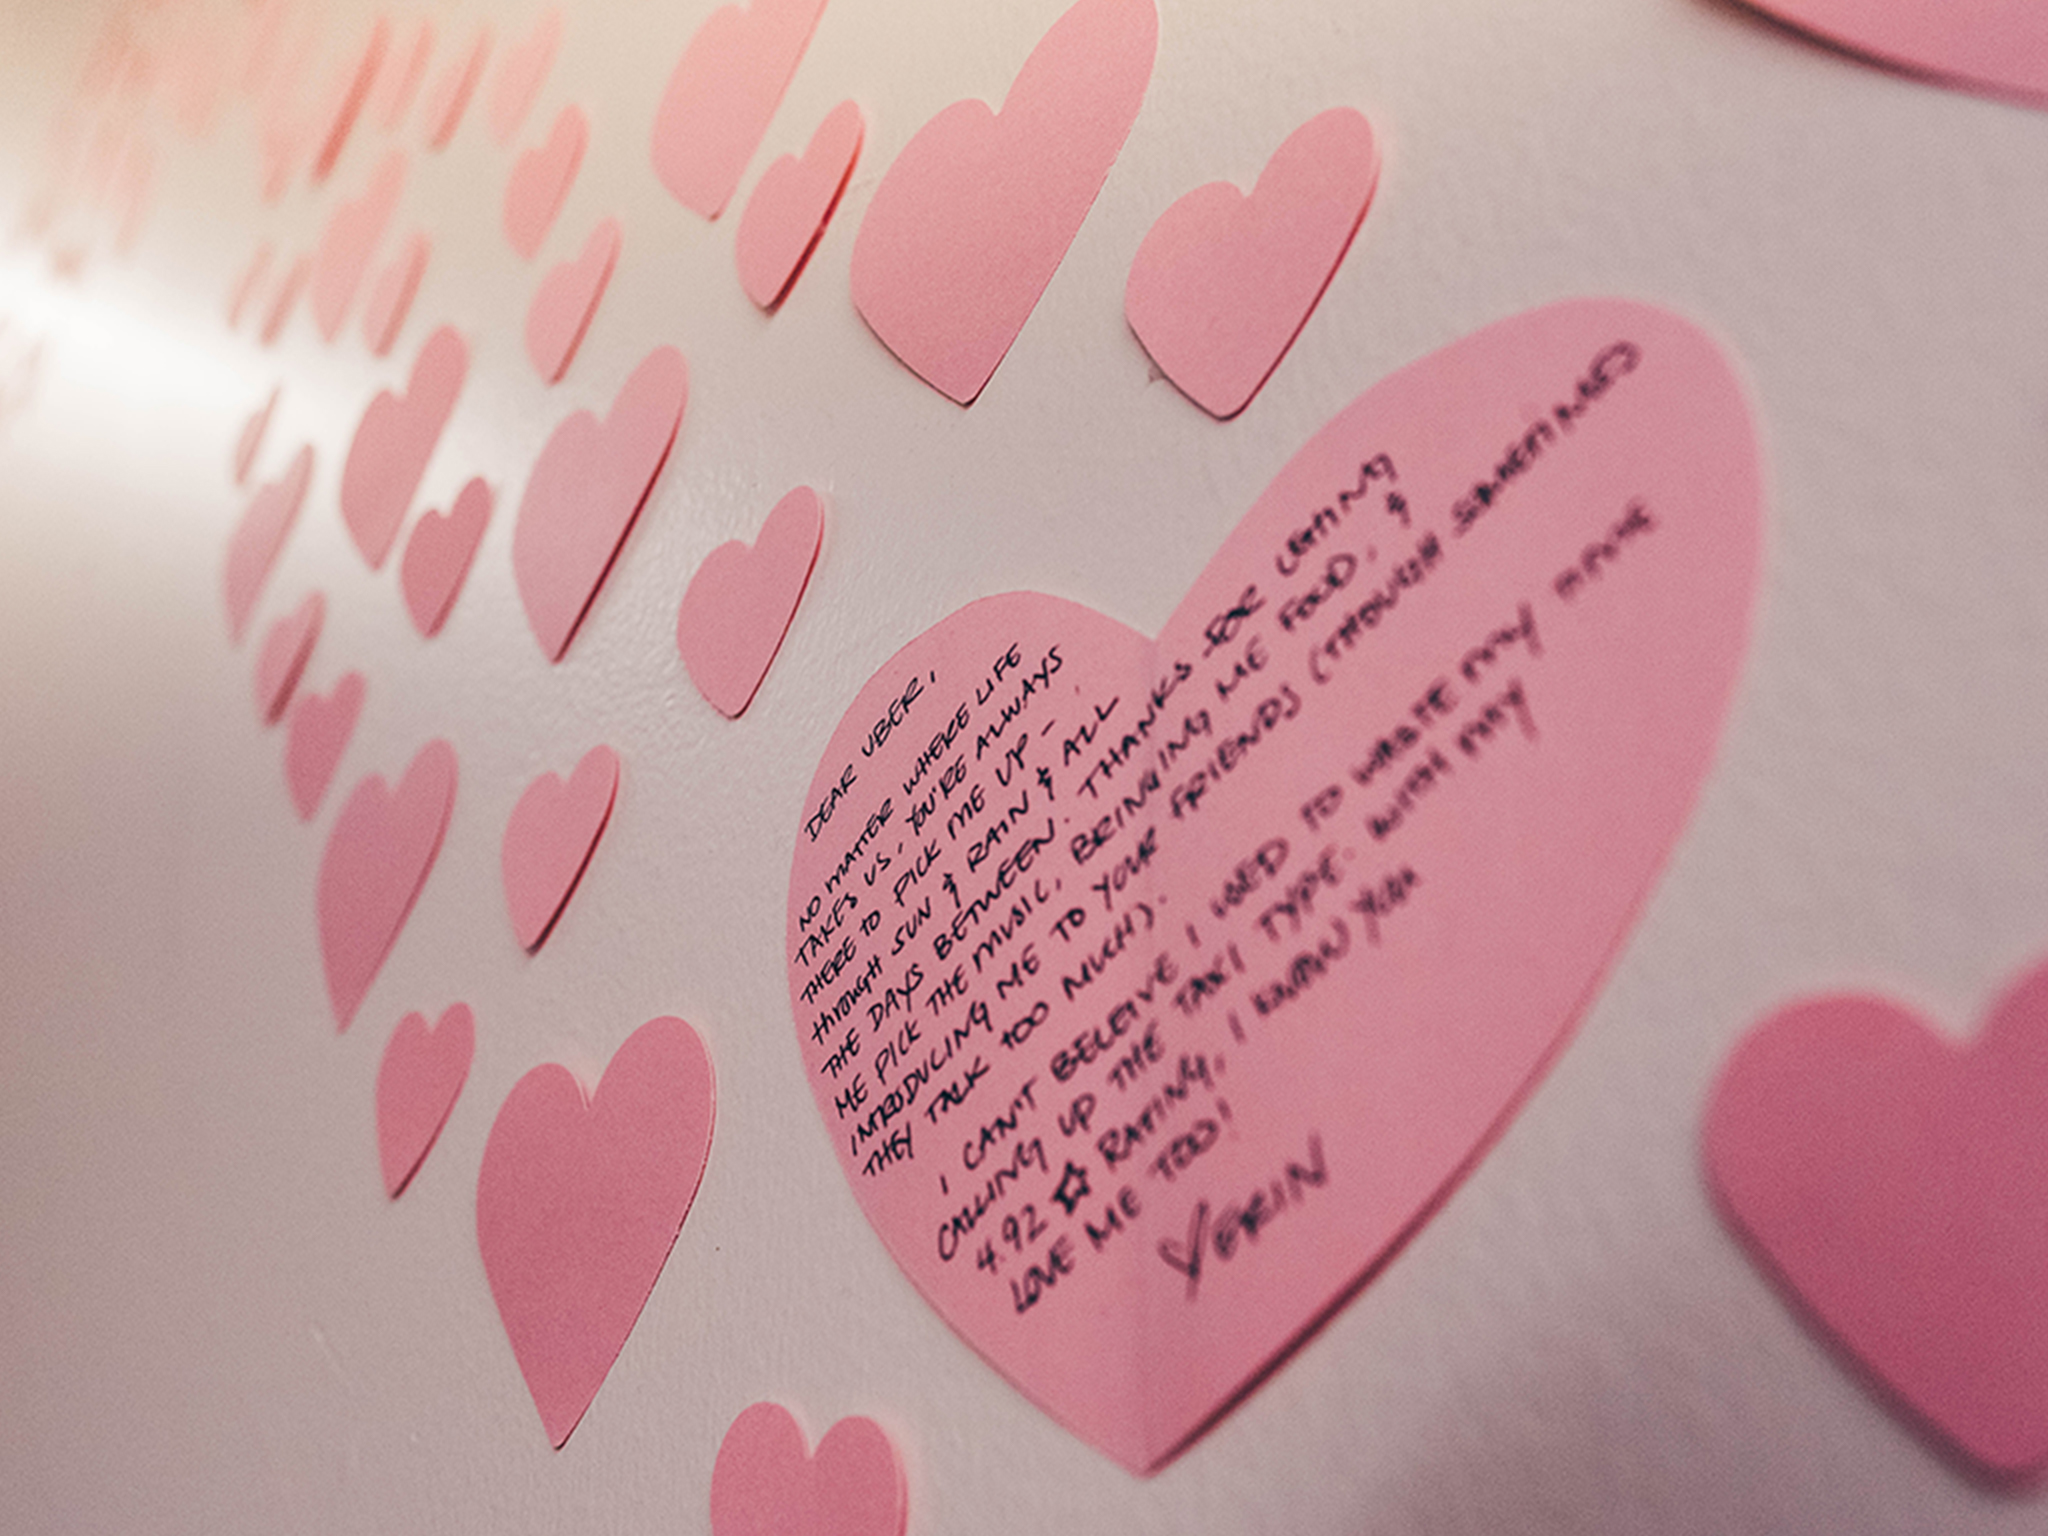 DEAR UBER,
NO MATTER WHERE LIFE
TAKES US, YOU'RE ALWAYS
THERE TO PICK ME UP -
THROUGH SUN & RAIN & ALL
THE DAYS BETWEEN. THANKS FOR LETTING
ME PICK THE MUSIC, BRINGING ME FOOD, &
INTRODUCING ME TO YOUR FRIENDS (THOUGH SOMETIMES
THEY TALK TOO MUCH).
I CAN'T BELEIVE I USED TO WASTE MY
CALLING UP THE TAXI TYPE. WITH MY
4.92 ☆ RATING, I KNOW YOU
LOVE ME TOO!
♡ERIN